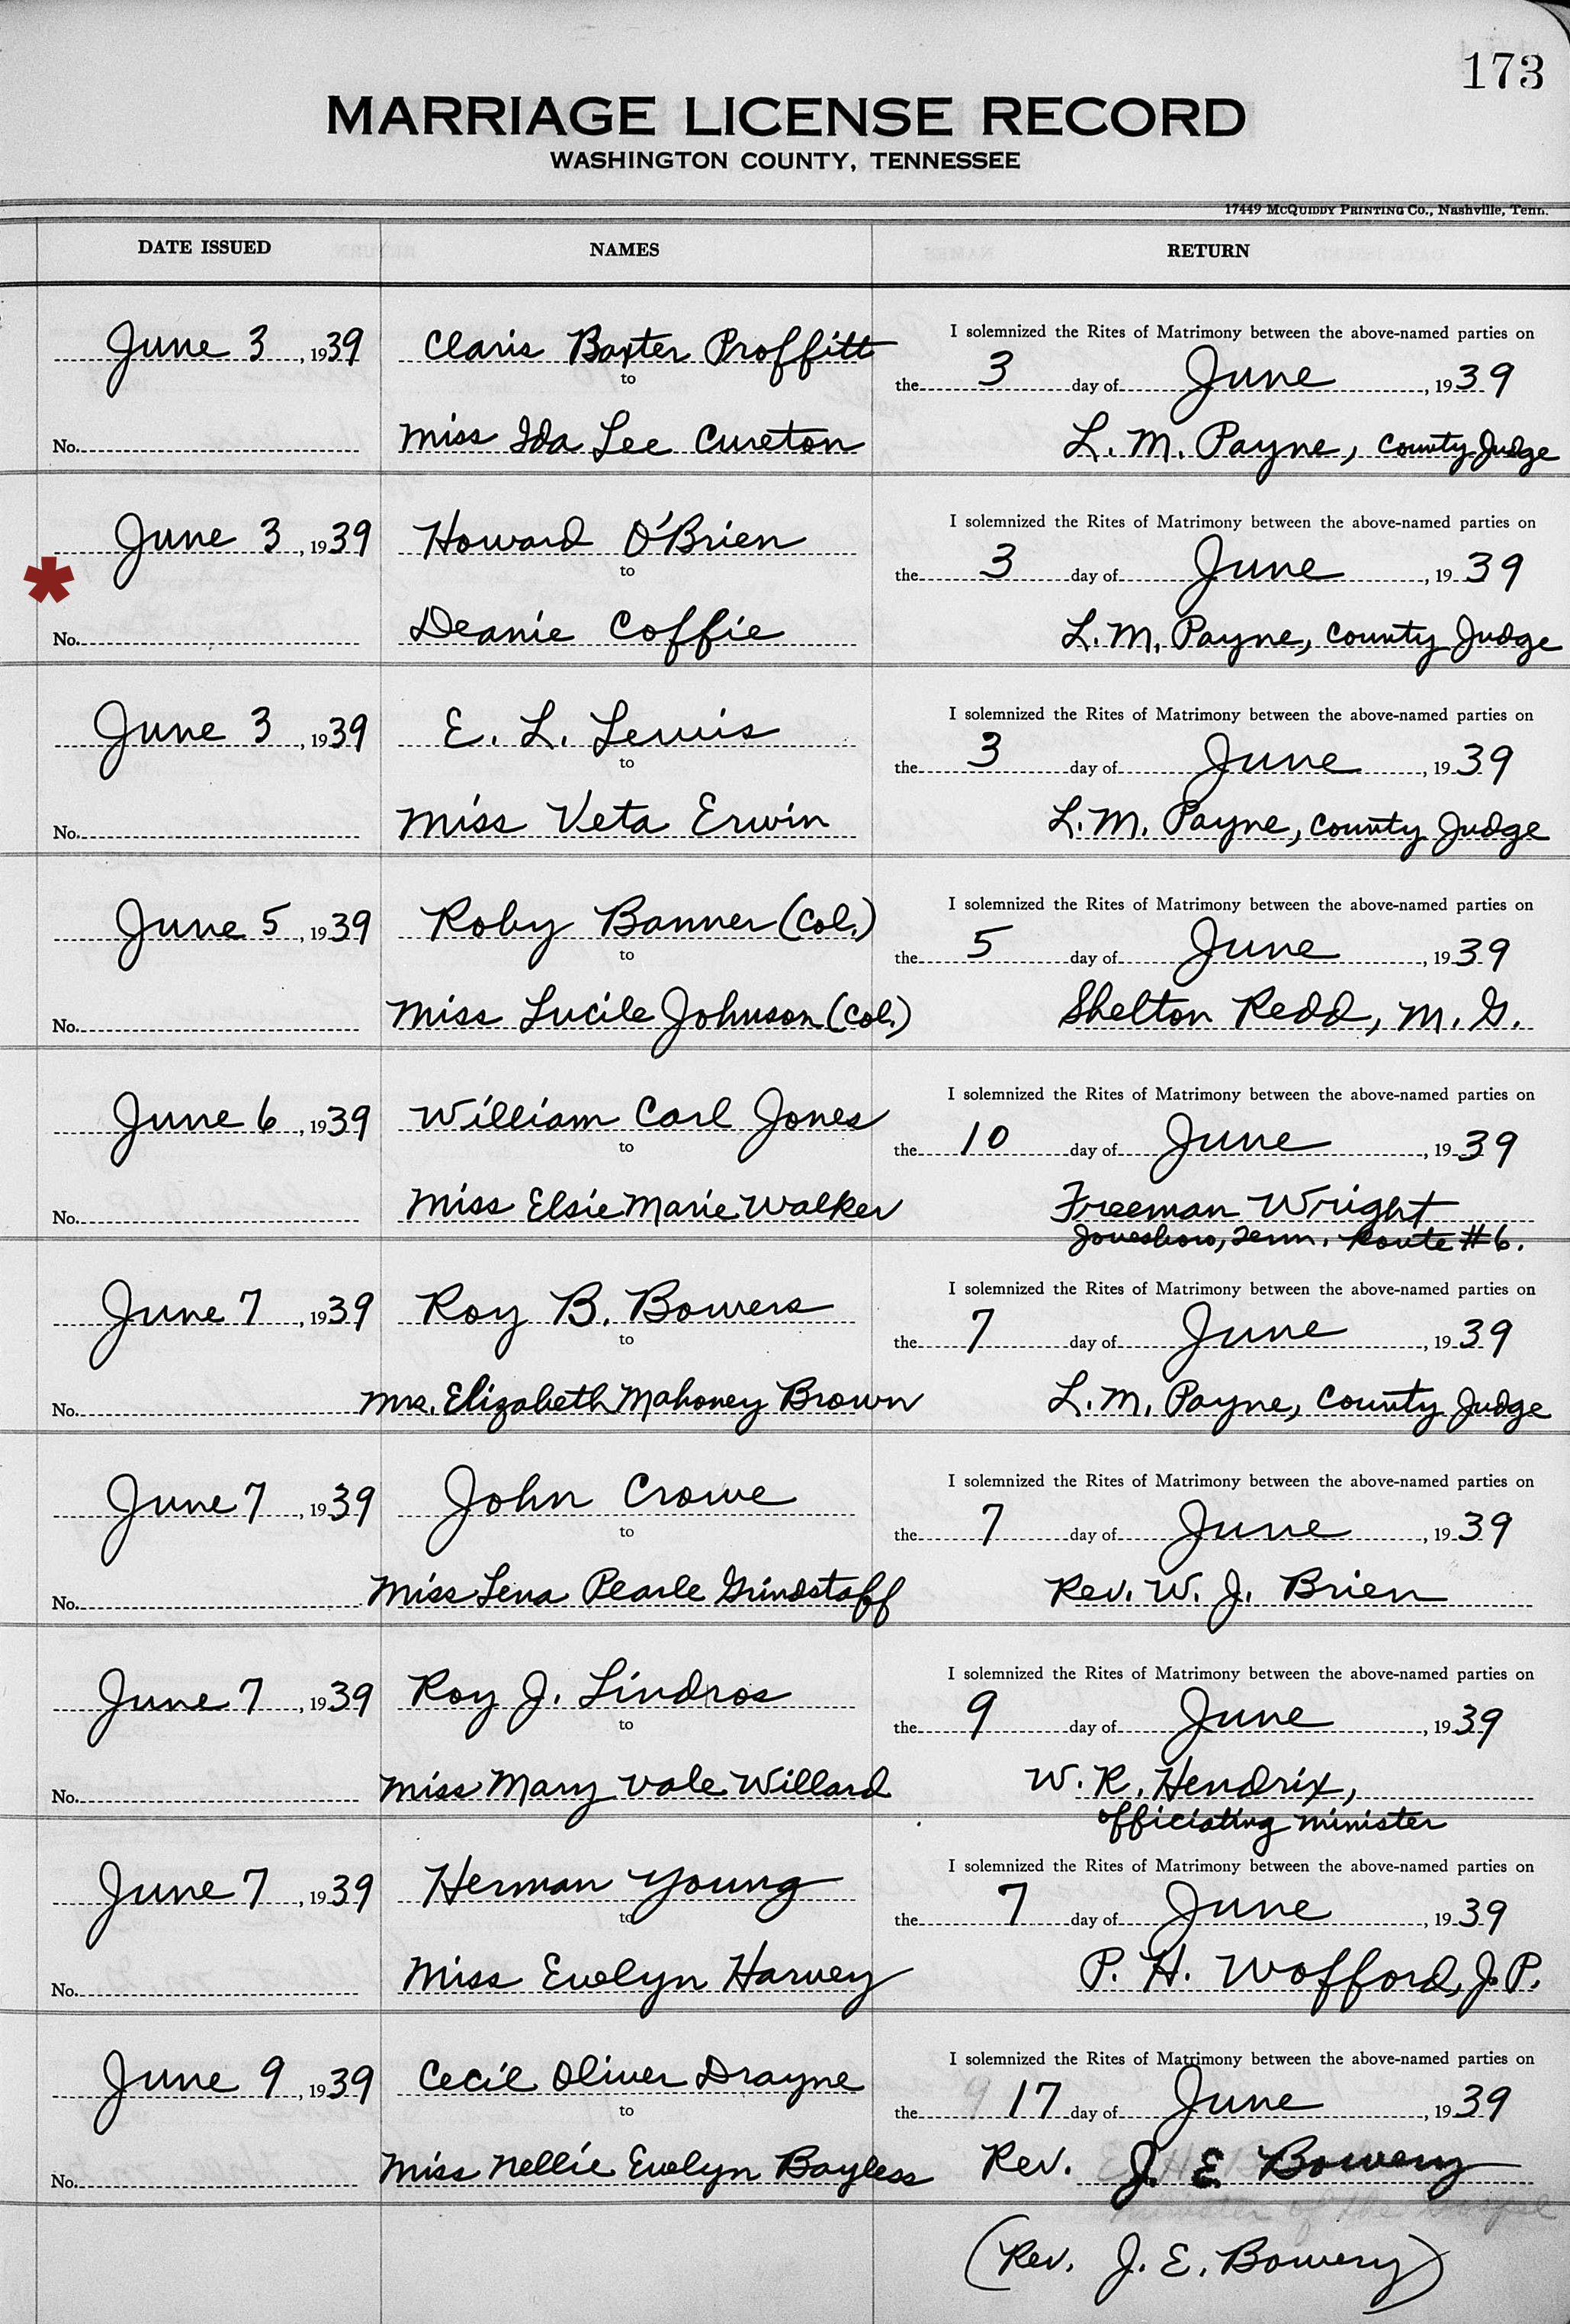 173
MARRIAGE LICENSE RECORD
WASHINGTON COUNTY, TENNESSEE
17449 McQuiddy Printing Co., Nashville, Tenn.
DATE ISSUED NAMES RETURN
I solemnized the Rites of Matrimony between the above-named parties on
June 3, 1939 Claris Baxter Proffitt
to
the 3 day of June, 1939
No. Miss Ida Lee Cureton L. M. Payne, County Judge
I solemnized the Rites of Matrimony between the above-named parties on
June 3, 1939 Howard O'Brien
to
the 3 day of June, 1939
*
No. Deanie Coffie L. M. Payne, County Judge
I solemnized the Rites of Matrimony between the above-named parties on
June 3, 1939 E. L. Lewis
to
the 3 day of June, 1939
No. Miss Veta Erwin L. M. Payne, County Judge
I solemnized the Rites of Matrimony between the above-named parties on
June 5, 1939 Roby Banner (Col.)
to
the 5 day of June, 1939
No. Miss Lucile Johnson (Col.) Shelton Redd, M. G.
I solemnized the Rites of Matrimony between the above-named parties on
June 6, 1939 William Carl Jones
to
the 10 day of June, 1939
No. Miss Elsie Marie Walker Freeman Wright
Jonesboro, Tenn. Route #6.
I solemnized the Rites of Matrimony between the above-named parties on
June 7, 1939 Roy B. Bowers
to
the 7 day of June, 1939
No. Mrs. Elizabeth Mahoney Brown L. M. Payne, County Judge
I solemnized the Rites of Matrimony between the above-named parties on
June 7, 1939 John Crowe
to
the 7 day of June, 1939
No. Miss Lena Pearle Grindstaff Rev. W. J. Brien
I solemnized the Rites of Matrimony between the above-named parties on
June 7, 1939 Roy J. Lindros
to
the 9 day of June, 1939
No. Miss Mary Vale Willard W. R. Hendrix,
officiating minister
I solemnized the Rites of Matrimony between the above-named parties on
June 7, 1939 Herman Young
to
the 7 day of June, 1939
No. Miss Evelyn Harvey P. H. Wofford, J. P.
I solemnized the Rites of Matrimony between the above-named parties on
June 9, 1939 Cecil Oliver Drayne
to
the 17 day of June, 1939
No. Miss Nellie Evelyn Bayless Rev. J. E. Bowery
minister of the Gospel
(Rev. J. E. Bowery)